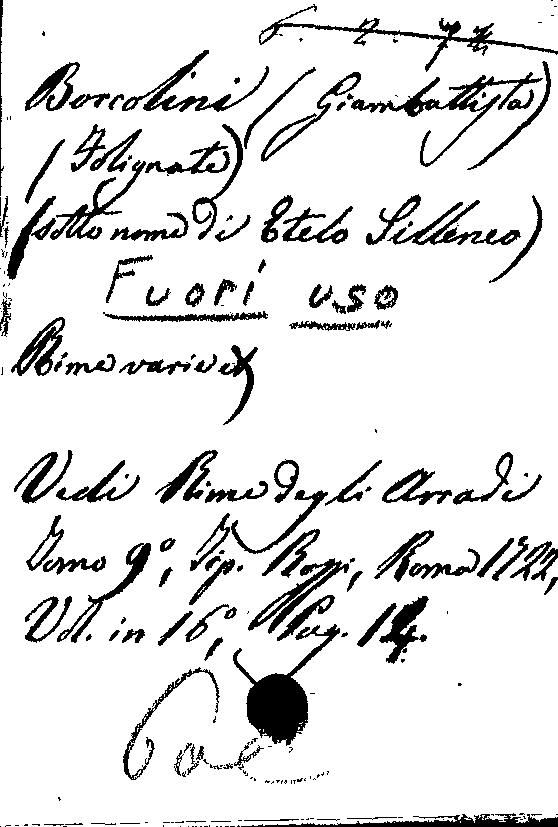 6. 2. 72
Boccolini (Giambattista)
(Folignate)
(sotto nome di Etelo Silleneo)
Fuori uso
Rime varie
Vedi Rime degli Arcadi
Tomo 9°, Tip. Rossi, Roma 1722,
Vol. in 16°, Pag. 12.